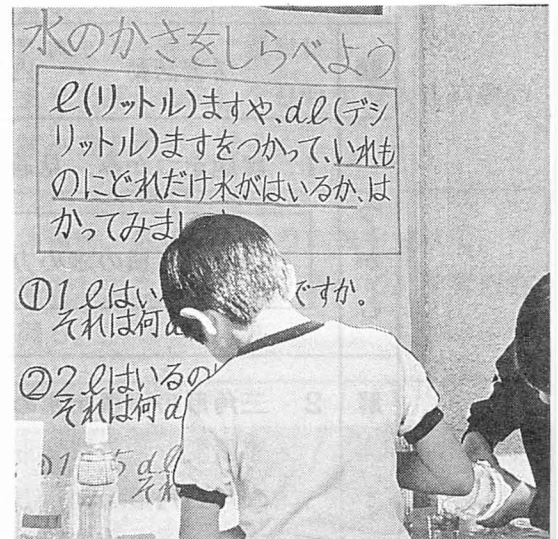 水のかさをしらべよう
ℓ(リットル)ますや、dℓ(デシ
リットル)ますをつかって、いれも
のにどれだけ水がはいるか、は
かってみまし
①1ℓはい ですか。
それは何d
②2ℓはいるの
それは何d
1 5dℓ
それ